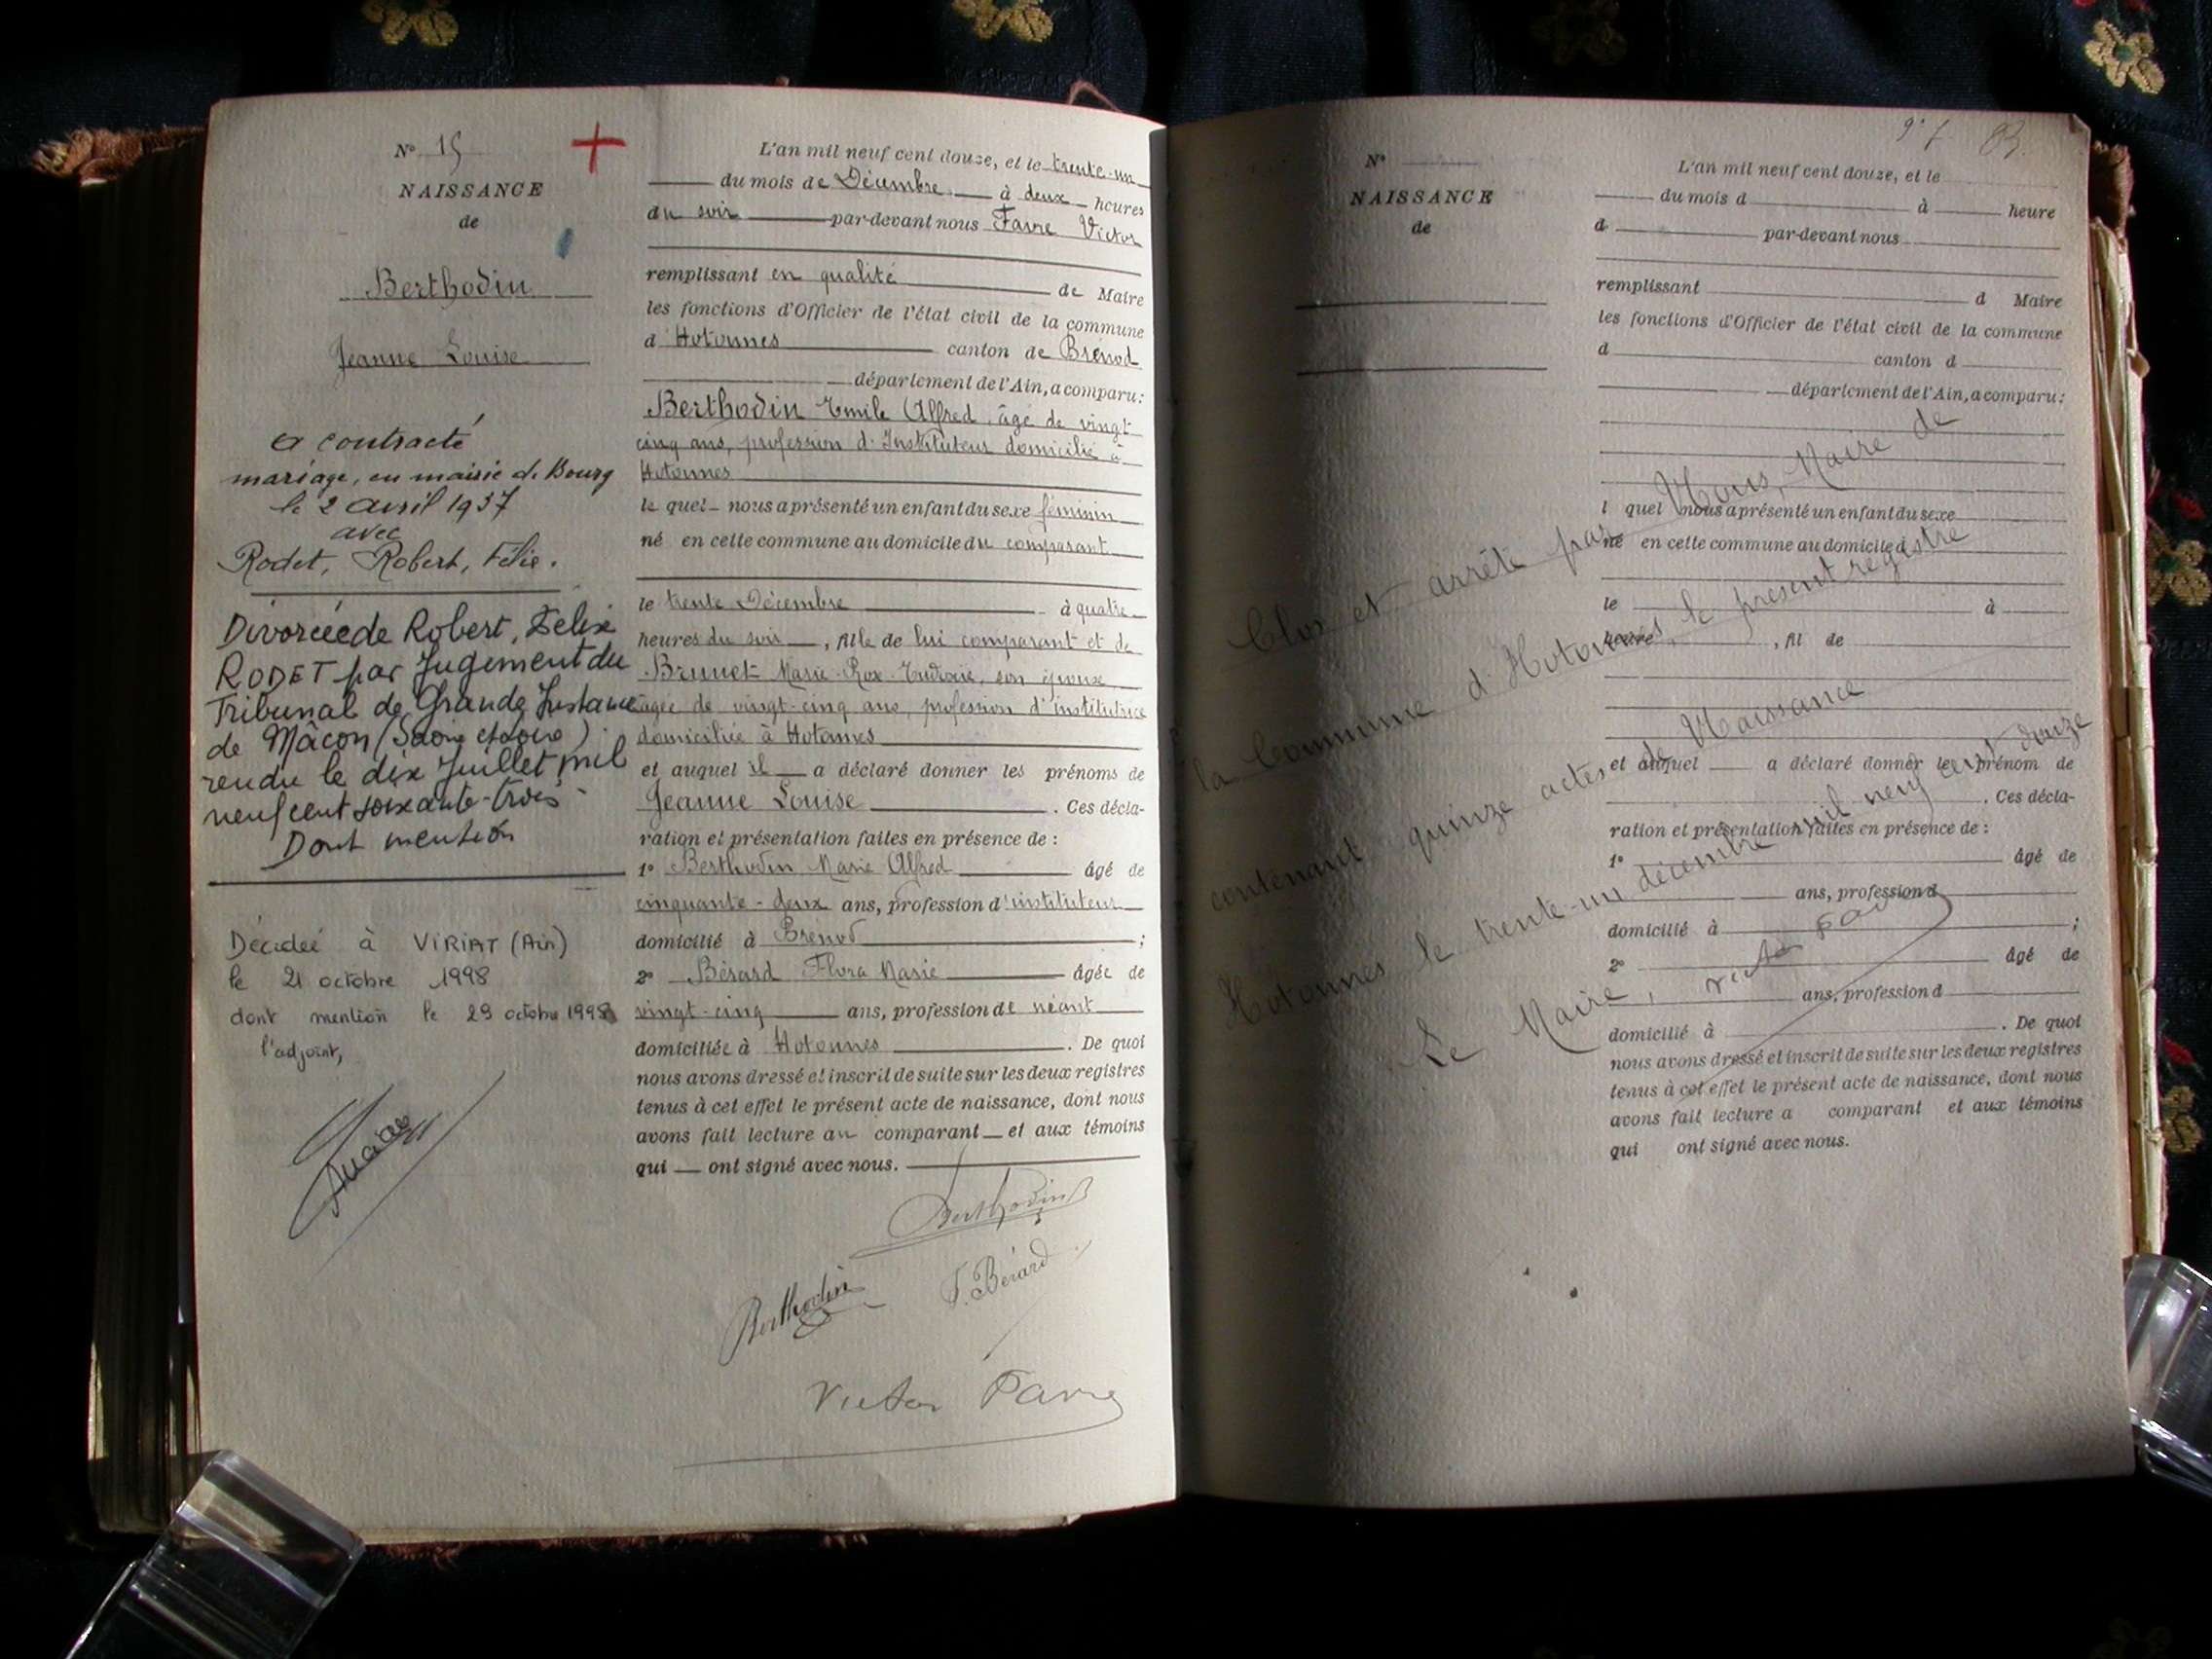 N° 15
NAISSANCE
de
Berthodin
Jeanne Louise
a contracté
mariage, en mairie de Bourg
le 2 avril 1937
avec
Rodet, Robert, Félix.
Divorcée de Robert, Félix
RODET par Jugement du
Tribunal de Grande Instance
de Mâcon (Saône et Loire)
rendu le dix Juillet mil
neuf cent soixante-trois -
Dont mention
Décédée à VIRIAT (Ain)
le 21 octobre 1998
dont mention le 29 octobre 1998
l'adjoint,
L'an mil neuf cent douze, et le trente-un
du mois de Décembre à deux heures
du soir par-devant nous Favre Victor
remplissant en qualité de Maire
les fonctions d'Officier de l'état civil de la commune
d Hotonnes canton de Brénod
département de l'Ain, a comparu :
Berthodin Emile Alfred, âgé de vingt
cinq ans, profession d'Instituteur domicilié à
Hotonnes
le quel nous a présenté un enfant du sexe féminin
né en cette commune au domicile du comparant
le trente Décembre à quatre
heures du soir, fille de lui comparant et de
Brunet Marie son épouse
âgée de vingt-cinq ans, profession d'institutrice
domiciliée à Hotonnes
et auquel il a déclaré donner les prénoms de
Jeanne Louise. Ces décla-
ration et présentation faites en présence de :
1° Berthodin Marie Alfred âgé de
cinquante-deux ans, profession d'instituteur
domicilié à Brénod ;
2° Bérard Flora Marie âgée de
vingt-cinq ans, profession de néant
domiciliée à Hotonnes. De quoi
nous avons dressé et inscrit de suite sur les deux registres
tenus à cet effet le présent acte de naissance, dont nous
avons fait lecture au comparant et aux témoins
qui ont signé avec nous.
Berthodin
Berthodin F. Bérard
Victor Favre
N°
NAISSANCE
de
L'an mil neuf cent douze, et le
du mois d à heure
d par-devant nous
remplissant d Maire
les fonctions d'Officier de l'état civil de la commune
d canton d
département de l'Ain, a comparu :
l quel nous a présenté un enfant du sexe
né en cette commune au domicile d
le à
heure , fil de
et auquel a déclaré donner le prénom de
. Ces décla-
ration et présentation faites en présence de :
1° âgé de
ans, profession d
domicilié à ;
2° âgé de
ans, profession d
domicilié à . De quoi
nous avons dressé et inscrit de suite sur les deux registres
tenus à cet effet le présent acte de naissance, dont nous
avons fait lecture a comparant et aux témoins
qui ont signé avec nous.
Clos et arrêté par Nous, Maire de
la Commune d'Hotonnes, le présent registre
contenant quinze actes de Naissance
Hotonnes le trente-un décembre mil neuf cent douze
Le Maire, Victor Favre